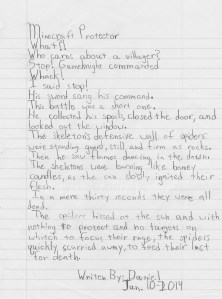 Minecraft Protector
What?!
Who cares about a villager?
Stop! Gameknight commanded
Whack!
I said stop!
His sword sang his command.
This battle was a short one.
He collected his spoils, closed the door, and
looked out the window.
The skeleton's defensive wall of spiders
were standing guard, still and firm as rocks.
Then he saw flames dancing in the dawn.
The skeletons were burning like boney
candles, as the sun slowly ignited their
flesh.
In a mere thirty seconds they were all
dead.
The spiders hissed at the sun and with
nothing to protect and no targets on
which to focus their rage, the spiders
quickly scurried away, to feed their lust
for death.
Writen By: Daniel
Jan. 10 2014